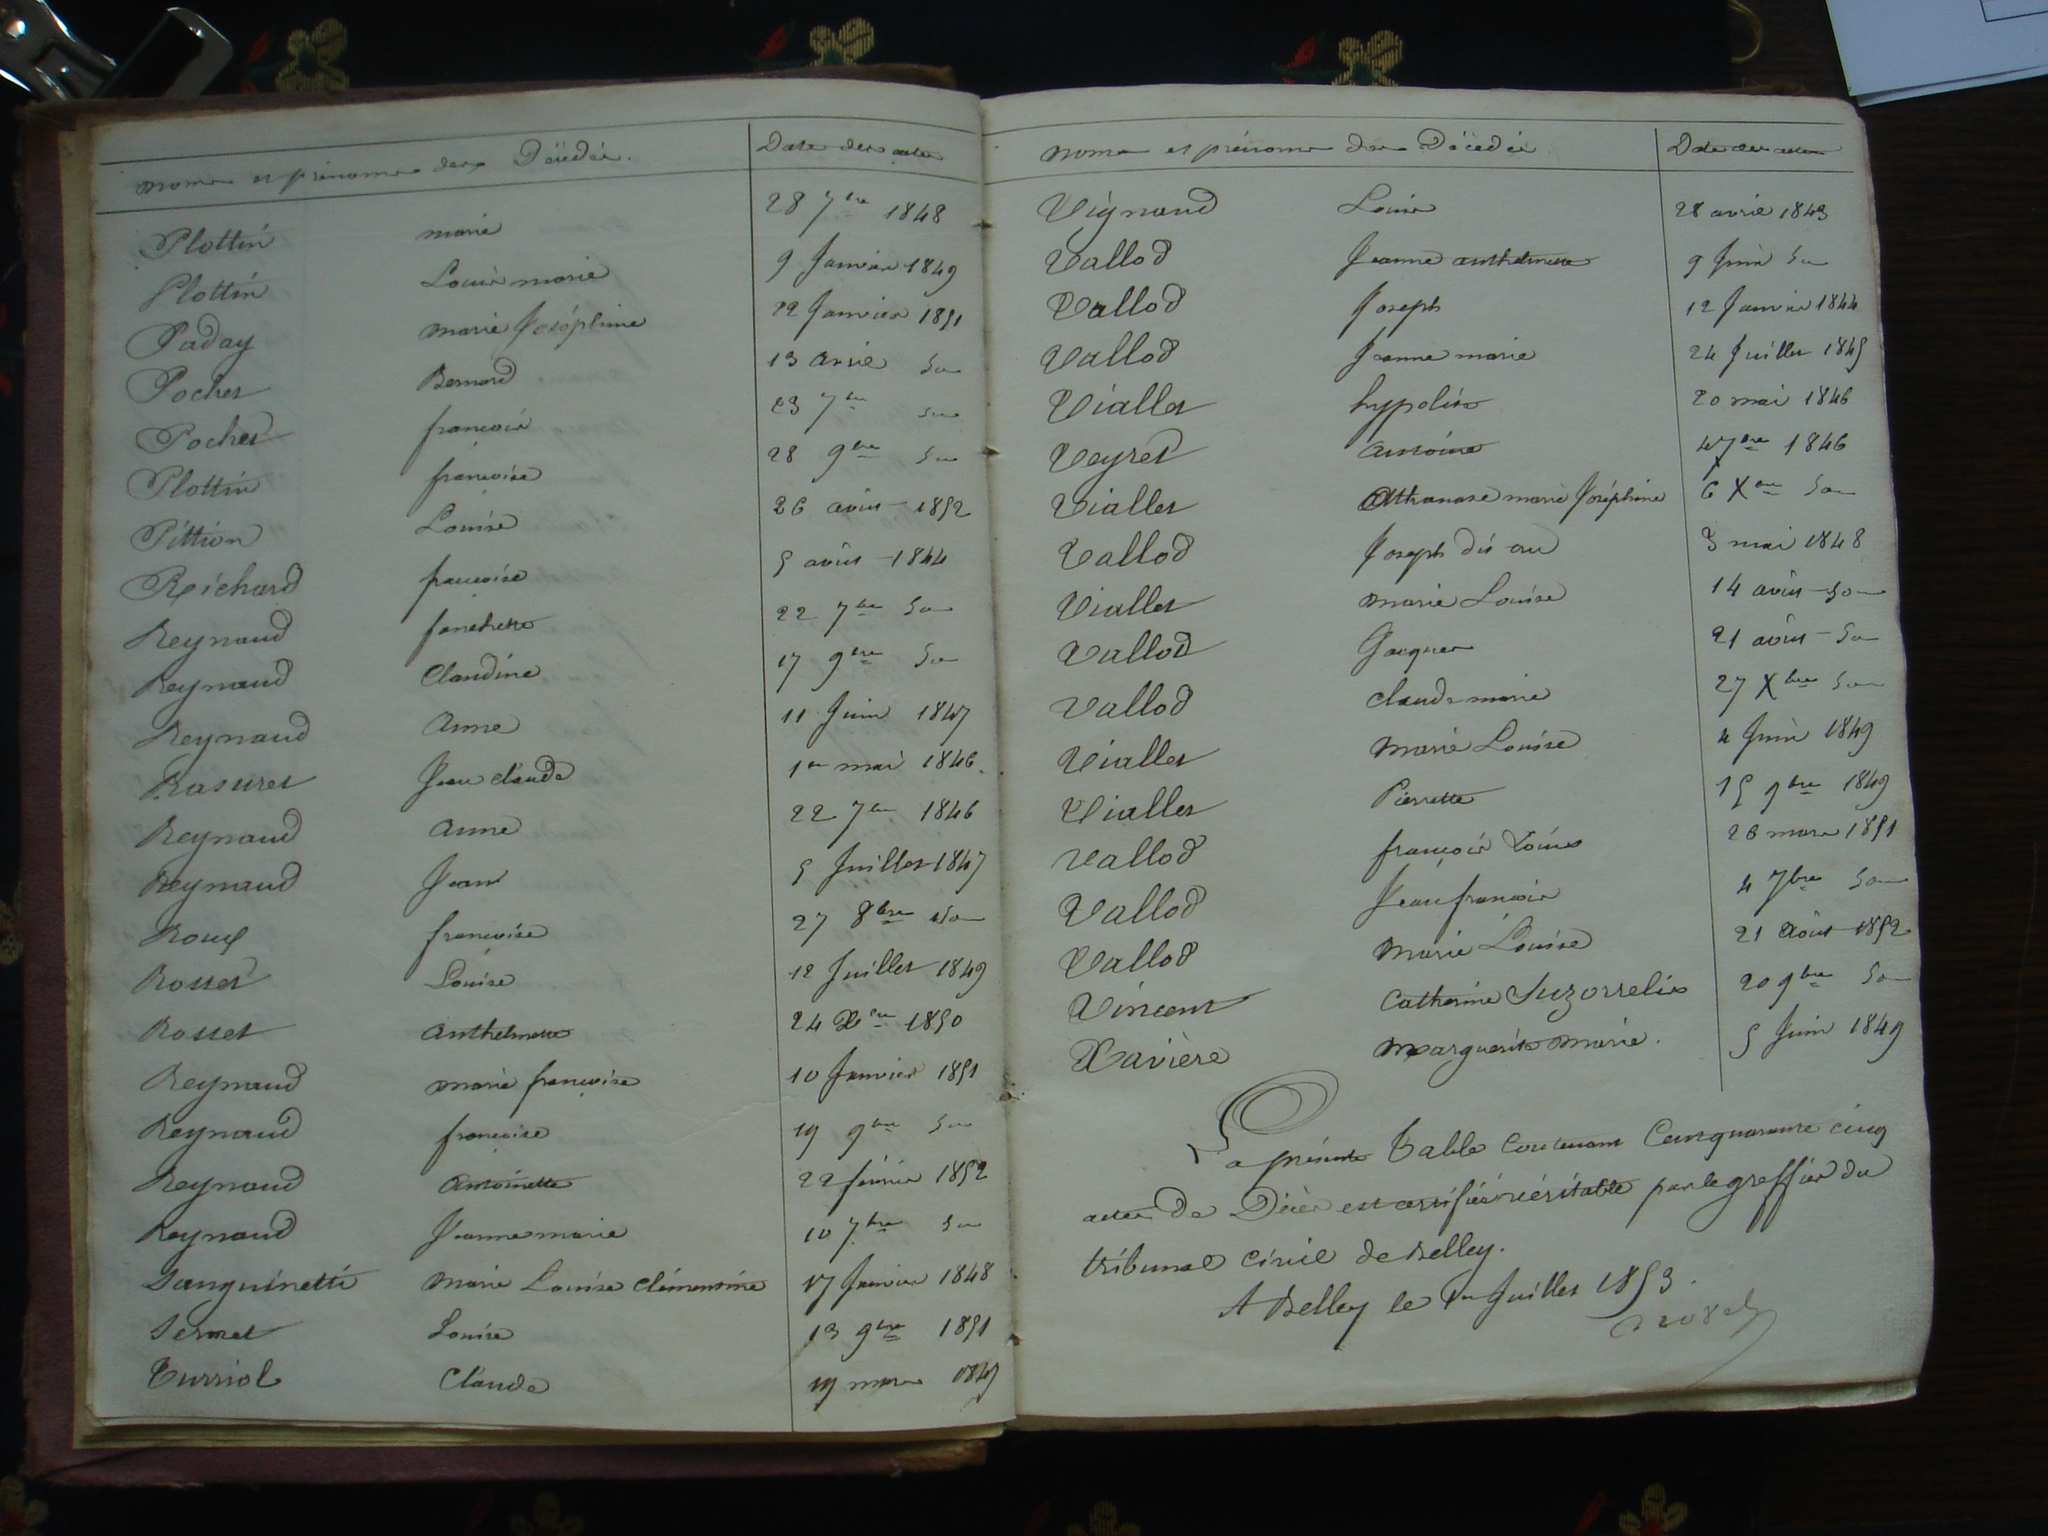 noms et prénoms des Décédés. Date des actes
Plottin marie 28 7bre 1848
Plottin Louis marie 9 Janvier 1849
Paday marie Joséphine 22 Janvier 1851
Pochet Bernard 13 avril do
Pochet françois 23 7bre do
Plottin françoise 28 9bre do
Pittion Louise 26 août 1852
Reichard françoise 5 août 1844
Reynaud fanchette 22 7bre do
Reynaud Claudine 17 9bre do
Reynaud Anne 11 Juin 1847
Rasurel Jean claude 1er mai 1846.
Reynaud Anne 22 7bre 1846
Reynaud Jean 5 Juillet 1847
Roux françoise 27 8bre do
Rosset Louise 12 Juillet 1849
Rosset Anthelmette 24 Xbre 1850
Reynaud marie françoise 10 Janvier 1851
Reynaud françoise 19 9bre do
Reynaud Antoinette 22 février 1852
Reynaud Jeanne marie 10 7bre do
Sanguinetti Marie Louise Clémentine 17 Janvier 1848
Sermet Louise 13 9bre 1851
Turriol Claude 19 mars 1849
noms et prénoms des Décédés Date des actes
Vignaud Louis 28 avril 1843
Vallod Jeanne anthelmette 9 Juin do
Vallod Joseph 12 Janvier 1844
Vallod Jeanne marie 24 Juillet 1845
Viallet hypolite 20 mai 1846
Veyret Antoine 4 7bre 1846
Viallet Athanase marie Joséphine 6 Xbre do
Vallod Joseph dit 3 mai 1848
Viallet Marie Louise 14 août do
Vallod Jacques 21 août do
Vallod claude marie 27 Xbre do
Viallet Marie Louise 4 Juin 1849
Viallet Pierrette 15 9bre 1849
Vallod françois Louis 26 mars 1851
Vallod Jean françois 4 7bre do
Vallod Marie Louise 21 Août 1852
Vincent Catherine 20 9bre do
Xavière Marguerite Marie. 5 Juin 1849
La présente Table contenant Cent quarante cinq
actes de Décès est certifiée véritable par le greffier du
tribunal civil de Belley.
A Belley le 1er Juillet 1853.